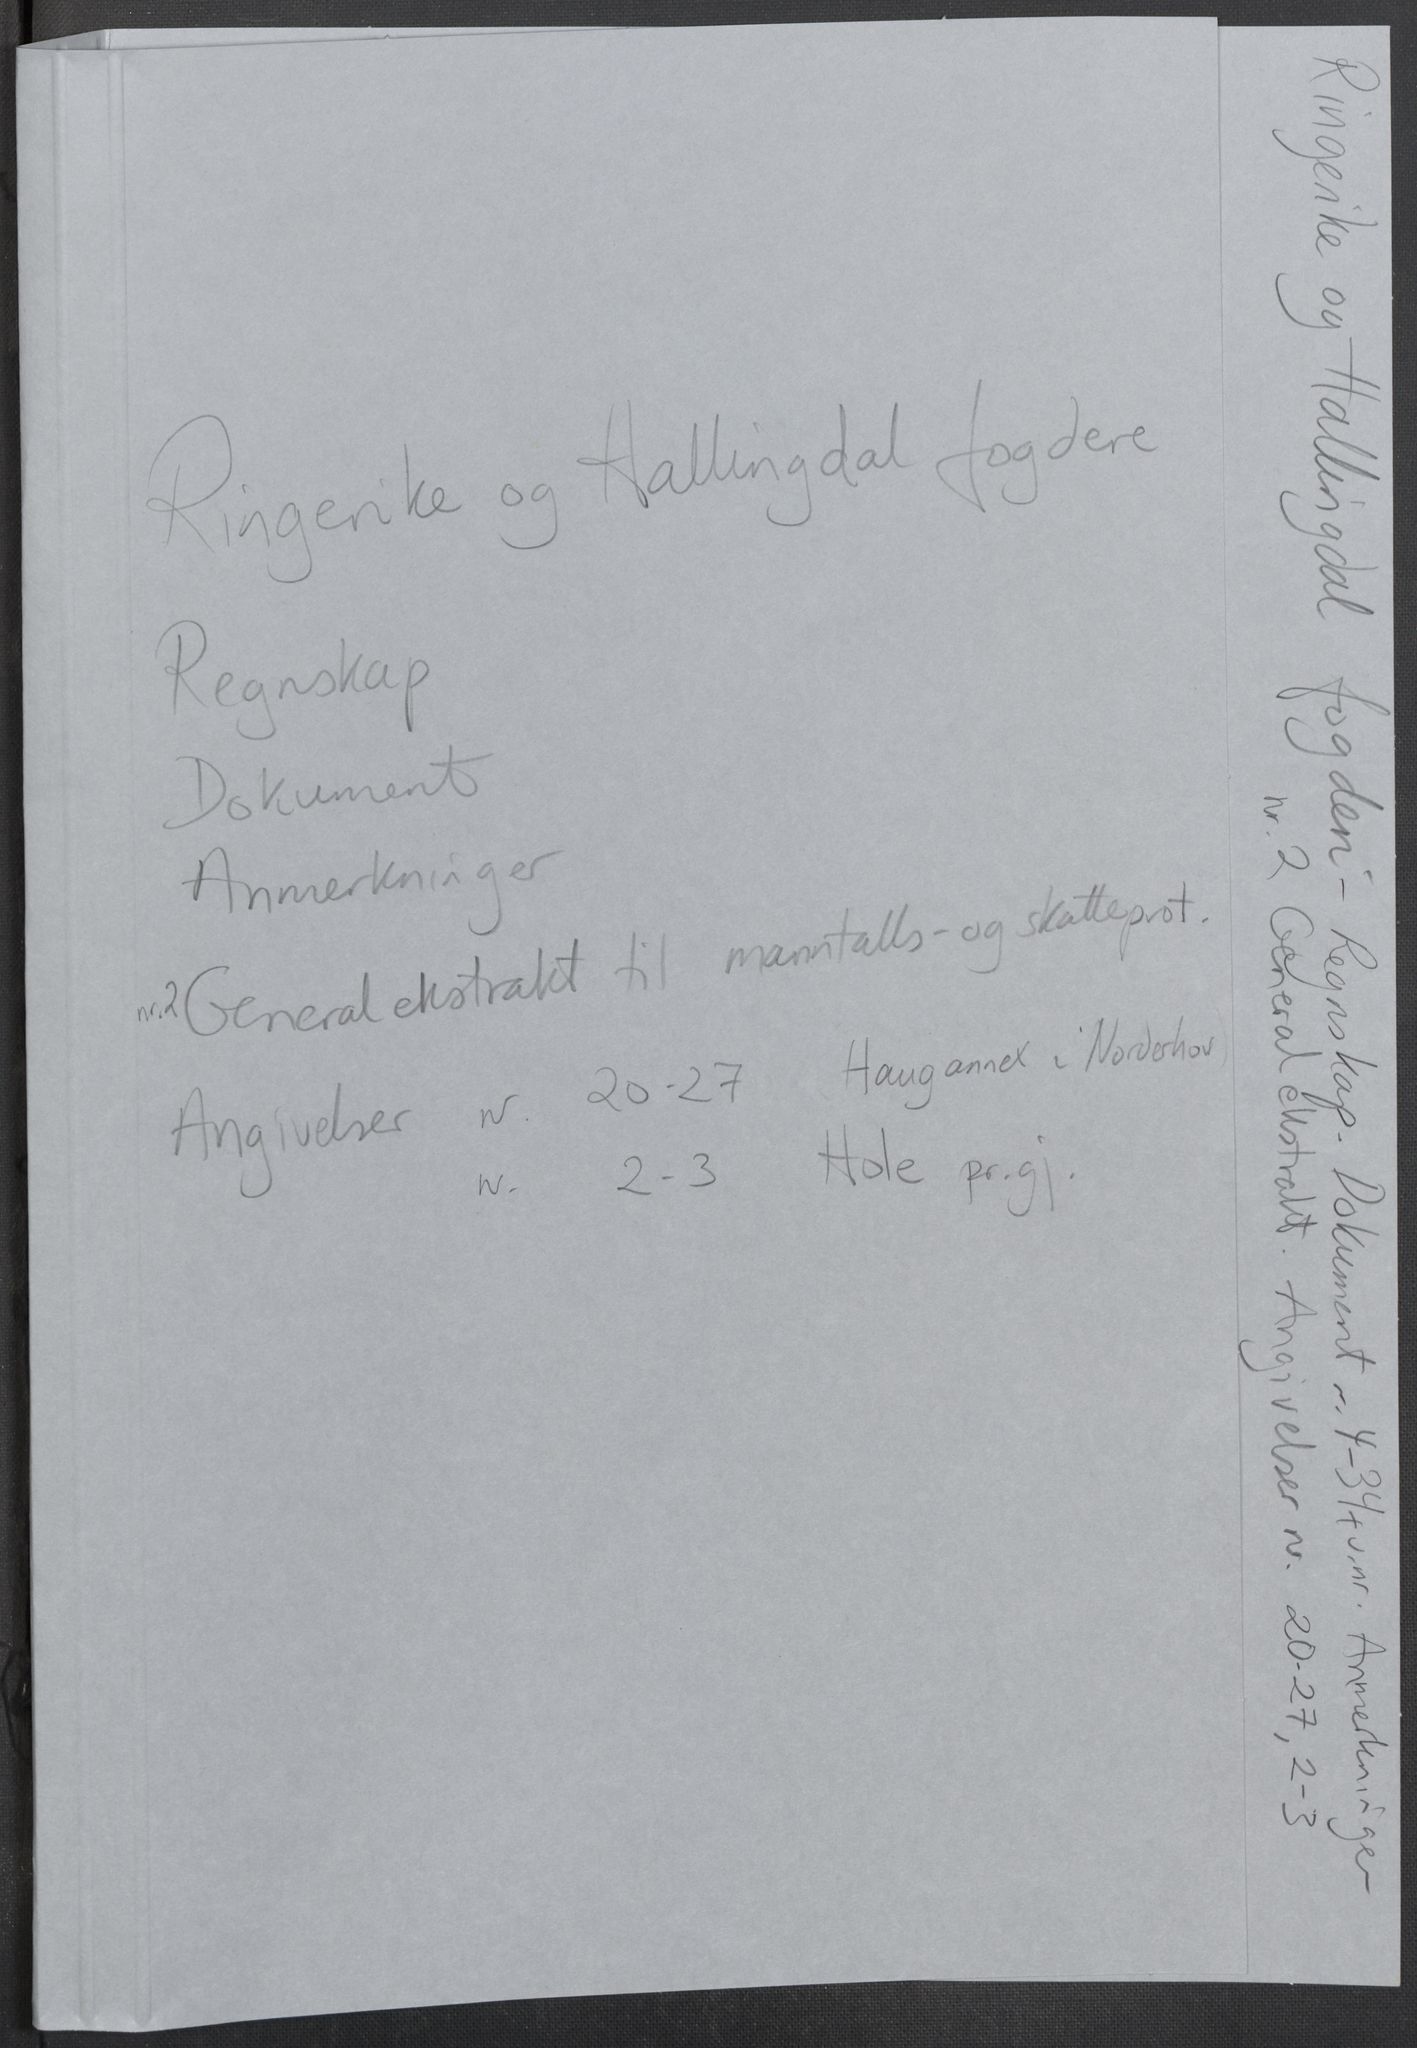 Ringerike og Hallingdal fogdere
Regnskap
Dokument
Anmerkninger
nr.2 General ekstrakt til manntalls- og skatteprot.
Angivelser nr. 20-27 Haug annex i Norderhov
nr. 2-3 Hole pr.gj.
Ringerike og Hallingdal fogderi - Regnskap. Dokument nr. 4-34 + u.nr. Anmerkninger
nr. 2 General ekstrakt. Angivelser nr. 20-27, 2-3